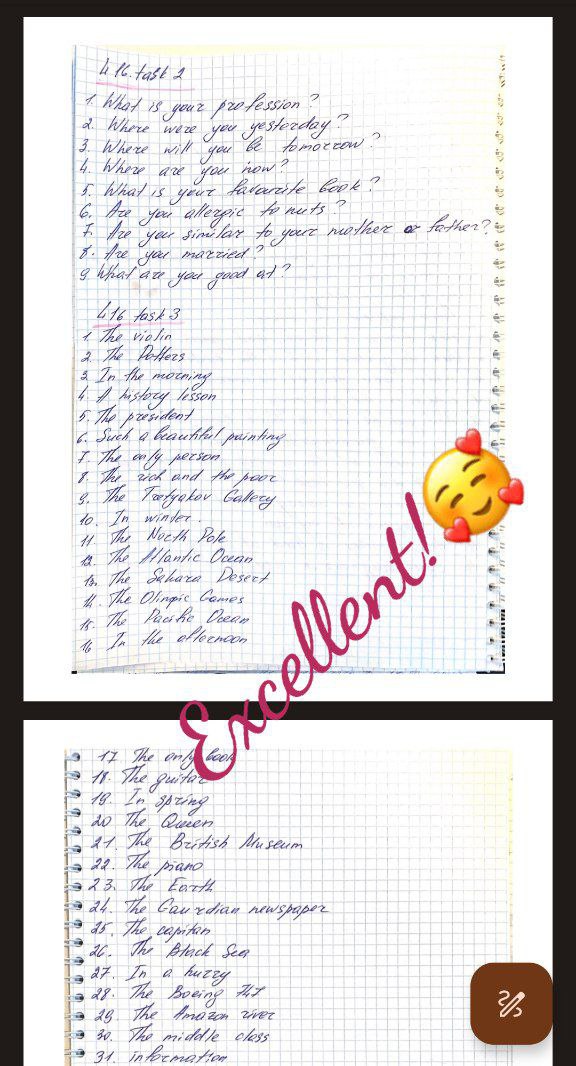 416. task 2
1. What is your profession?
2. Where were you yesterday?
3. Where will you be tomorrow?
4. Where are you now?
5. What is your favourite book?
6. Are you allergic to nuts?
7. Are you similar to your mother or father?
8. Are you married?
9. What are you good at?
416 task 3
1. The violin
2. The Potters
3. In the morning
4. A history lesson
5. The president
6. Such a beautiful painting
7. The only person
8. The rich and the poor
9. The Tretyakov Gallery
10. In winter.
11 The North Pole
12. The Atlantic Ocean
13. The Sahara Desert
14. The Olimpic Games
15. The Pacific Ocean
16 In the afternoon
Excellent!
17 The only book
18. The guitar
19. In spring
20 The Queen
21. The British Museum
22. The piano
23. The Earth
24. The Gaurdian newspaper
25. The capitan
26. The Black Sea
27. In a hurry
28. The Boeing 747
29 The Amazon river
30. The middle class
31. information